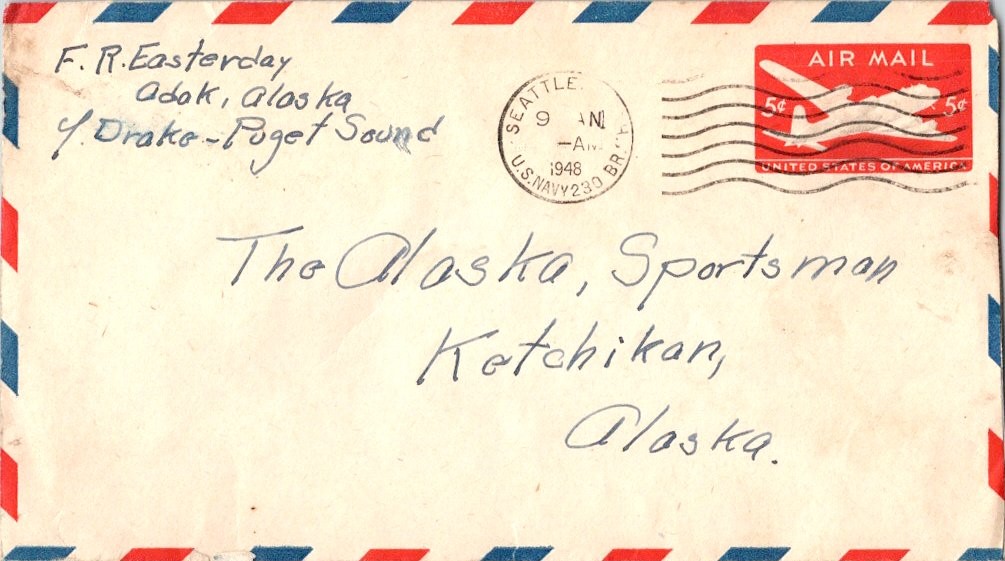 F. R. Easterday
Adak, Alaska
% Drake - Puget Sound
SEATTLE.
9 AM
-AM
1948
U.S. NAVY 230 BR.
AIR MAIL
5¢ 5¢
UNITED STATES OF AMERICA
The Alaska, Sportsman
Ketchikan,
Alaska.